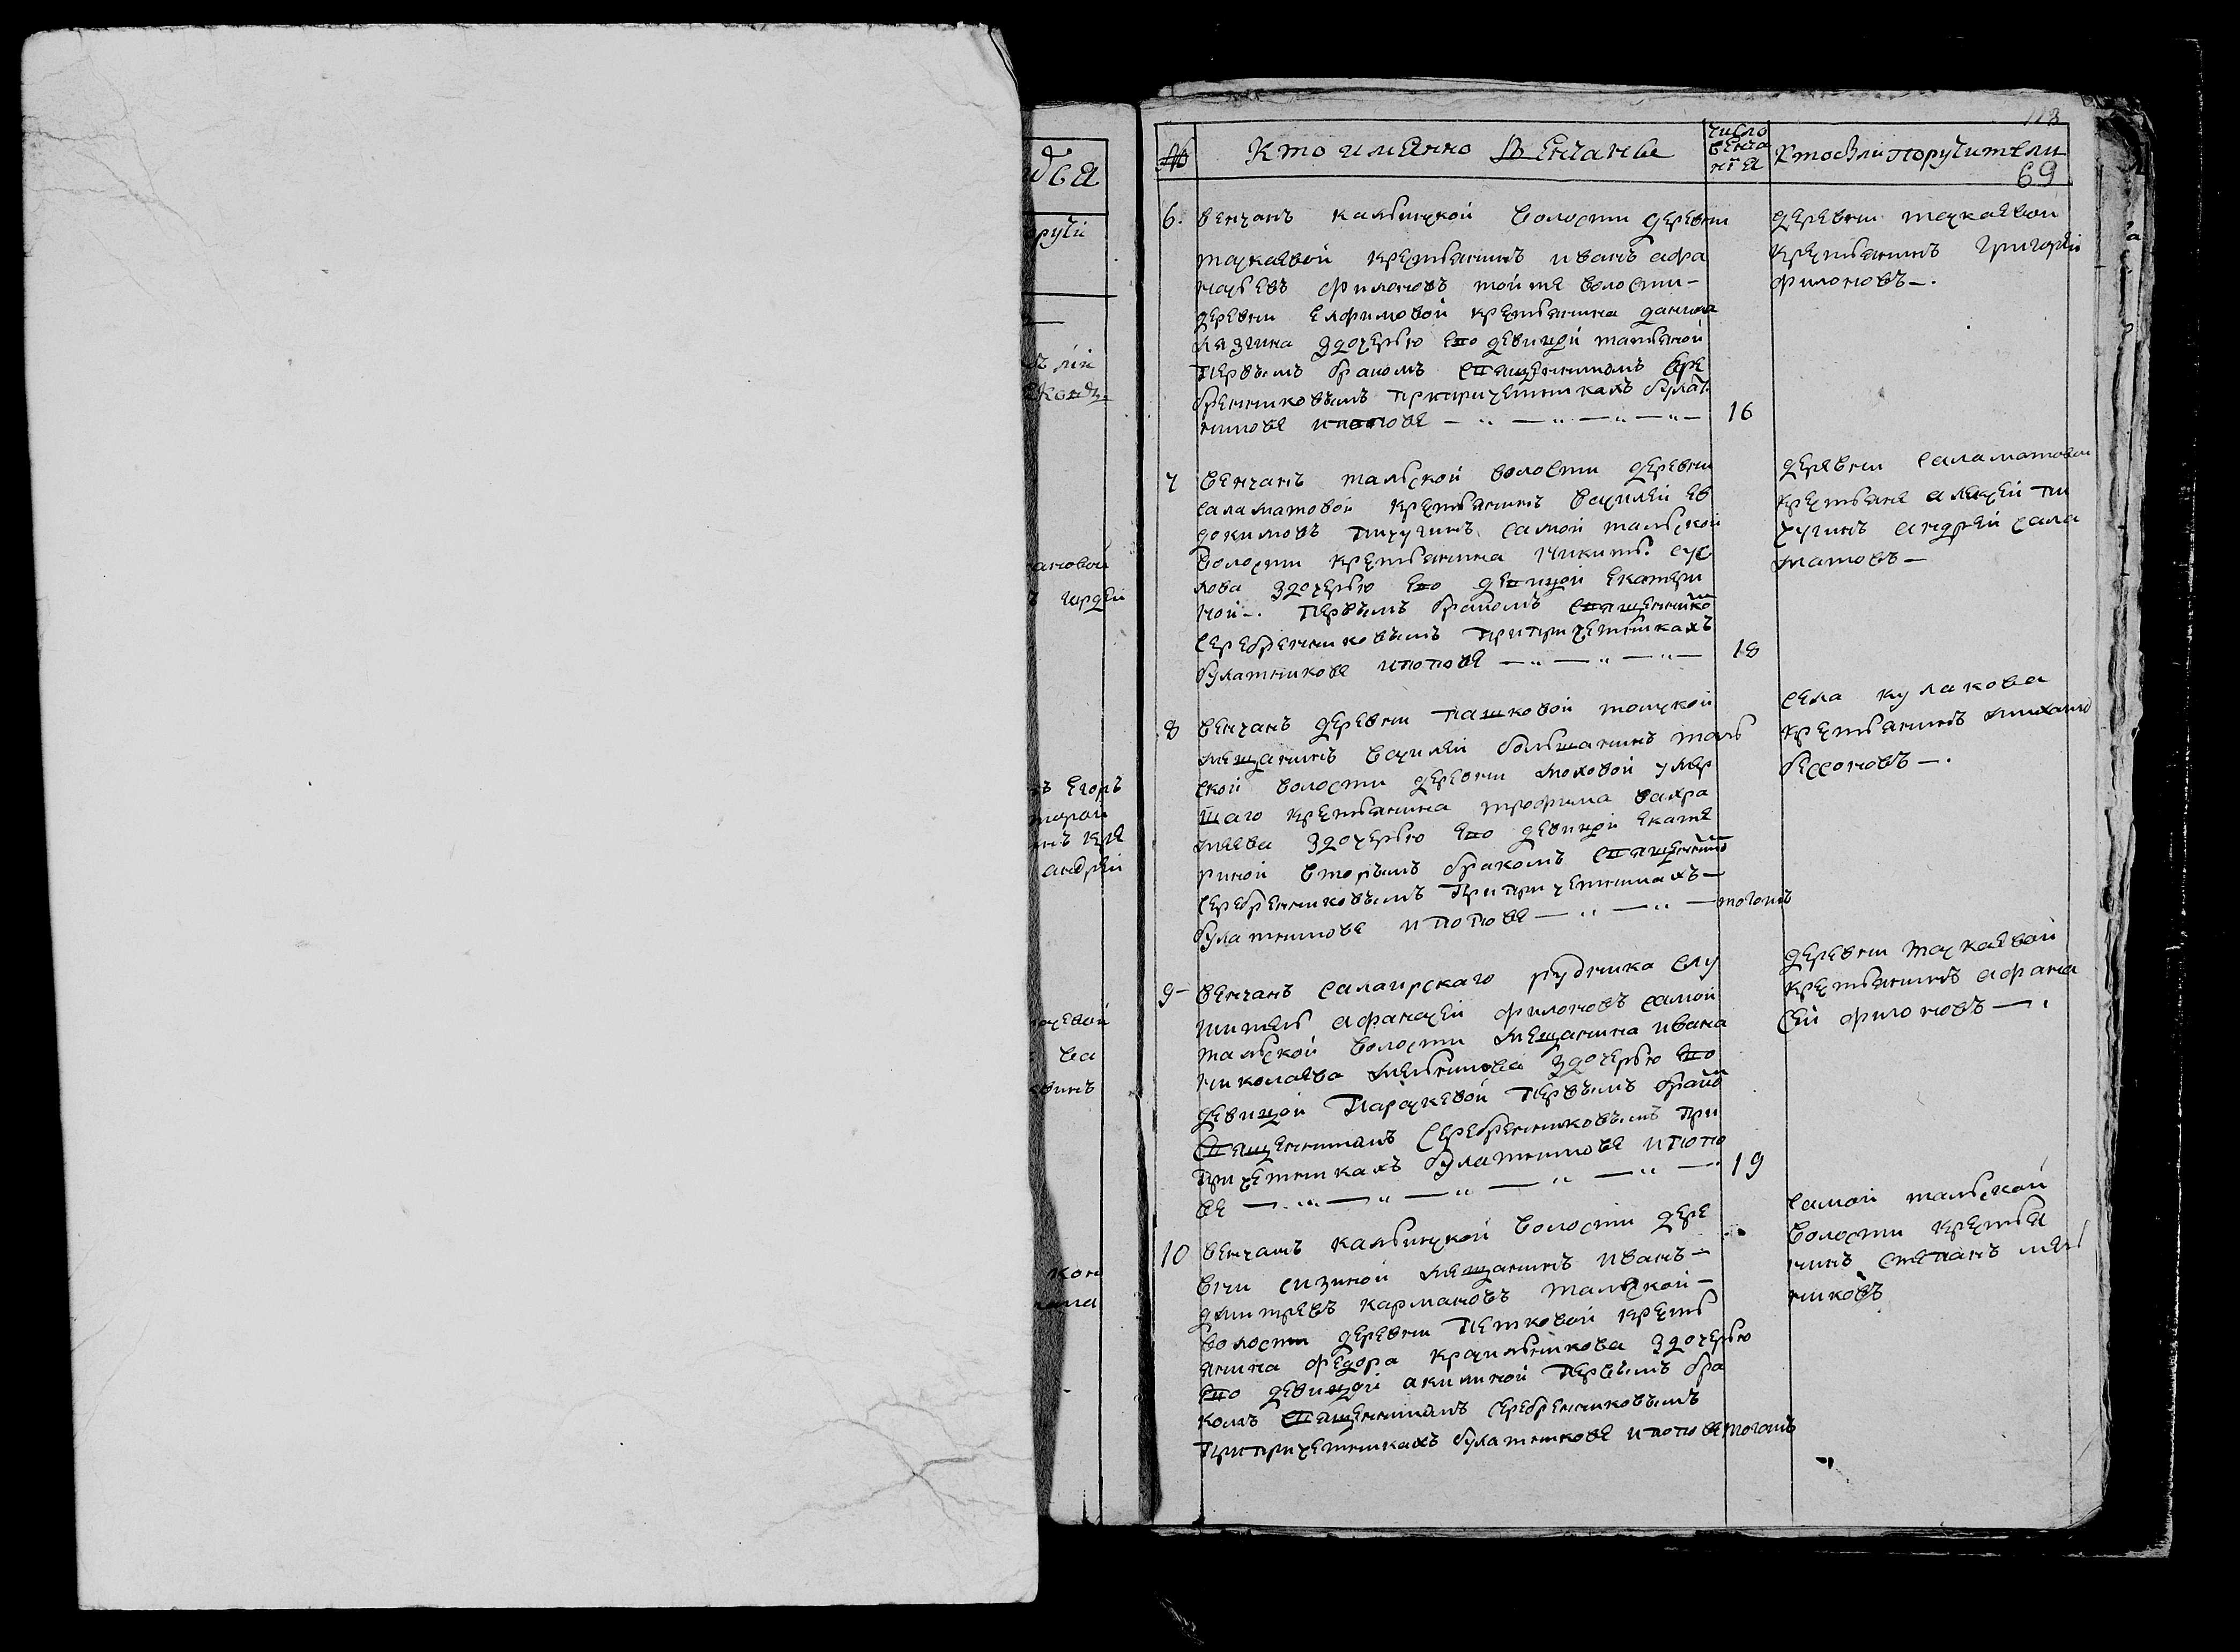 118
№ Кто имянно Венчаны
число венча нїя
Кто были поручители
69
6. венчанъ кайлинской волости деревни
таскаевой крестьянинъ иванъ афа
насьевъ филоновъ той же волости -
деревни елфимовой крестьянина данила
здочерью ево девицой татьяной
первымъ бракомъ священникомъ Сере
бренниковымъ припричетникахъ булат
никове ипопове 16
деревни таскаевои
крестьянинъ григорей
филоновъ -.
7 венчанъ тальской волости деревни
саламатовой крестьянинъ василей ев
докимовъ самой тальской
волости крестьянина никиты сус
лова здочерью ево девицой екатери
ной -. первымъ бракомъ священнико
серебренниковымъ припричетникахъ
булатникове ипопове 18
деревни саламатовои
крестьяне алексей
андрей сала
матовъ -
8 венчанъ деревни пашковой томской
мещанинъ василей большанинъ таль
ской волости деревни моховой умер
шаго крестьянина трофима вахра
меева здочерью ево девицой екате
риной вторымъ бракомъ священнико
серебренниковымъ припричетникахъ -
булатникове ипопове тогожъ
села кулакова
крестьянинъ михаило
бессоновъ -.
9 - венчанъ салаирскаго рудника слу
житель афанасей филоновъ самой
тальской волости мещанина ивана
николаева мельникова здочерью ево
девицой параскевой первымъ брако
священникамъ Серебренниковымъ при
причетникахъ булатникове ипопо
ве 19
деревни таскаевой
крестьянинъ афана
сей филоновъ -.
10 венчанъ кайлинской волости дере
вни сизиной мещанинъ иванъ -
дмитревъ кармановъ тальской -
волости деревни петковой кресть
янина федора красильникова здочерью
ево девицой акилиной первымъ бра
комъ священникамъ серебренниковымъ
припричетникахъ булатникове ипопове тогожъ
самой тальской
волости крестья
нинъ степанъ мель
никовъ